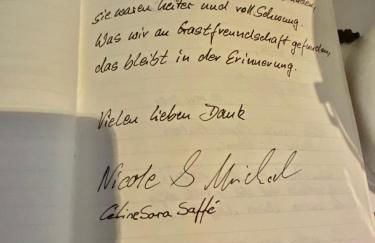 sie waren heiter und voll Schwung.
Was wir an Gastfreundschaft gefunden,
das bleibt in der Erinnerung.
Vielen lieben Dank
Nicole & Michael
Céline Sara Saffé